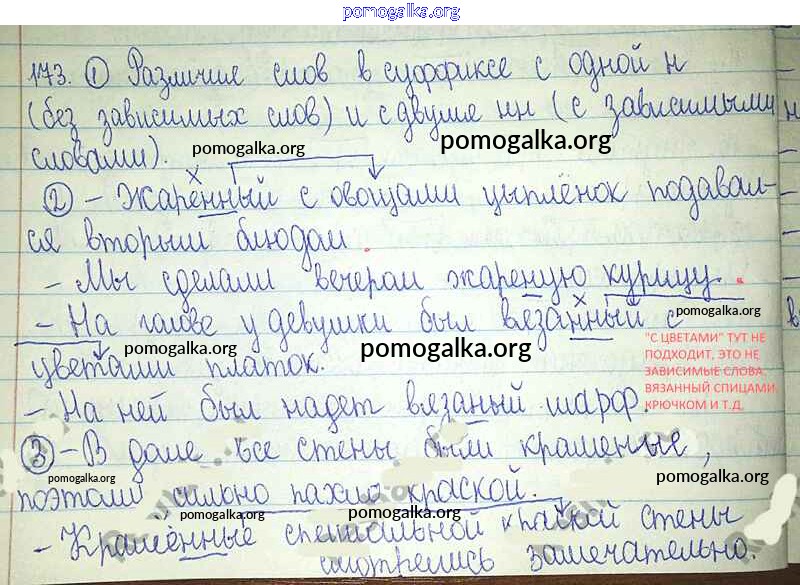 pomogalka.org
173. ① Различие слов в суффиксе с одной н
(без зависимых слов) и с двумя нн (с зависимыми
словами).
pomogalka.org
pomogalka.org
② - Жаренный с овощами цыплёнок подавал-
ся вторым блюдом.
- Мы сделали вечером жареную курицу.
pomogalka.org
- На голове у девушки был вязанный с
цветами платок.
pomogalka.org
pomogalka.org
"С ЦВЕТАМИ" ТУТ НЕ
ПОДХОДИТ, ЭТО НЕ
ЗАВИСИМЫЕ СЛОВА.
ВЯЗАННЫЙ СПИЦАМИ,
КРЮЧКОМ И Т.Д.
- На ней был надет вязаный шарф.
③ - В доме все стены были крашеные,
pomogalka.org
pomogalka.org
поэтому сильно пахло краской.
pomogalka.org
pomogalka.org
- Крашенные специальной краской стены
смотрелись замечательно.